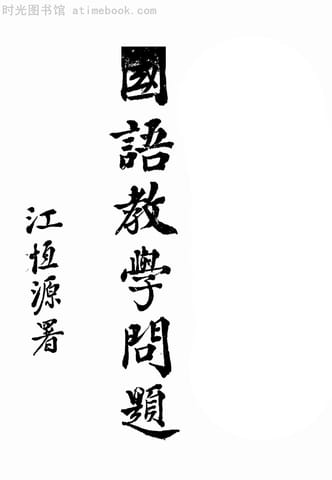 时光图书馆 atimebook.com
國語教學問題
江恆源署